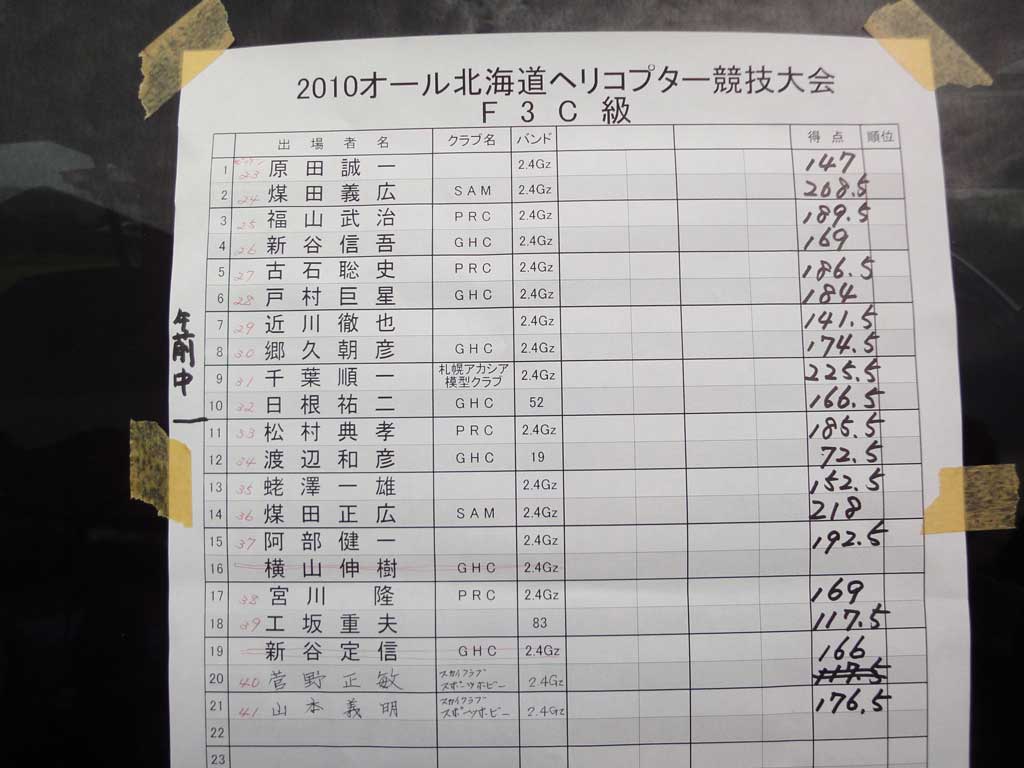 2010オール北海道ヘリコプター競技大会
F3C級
出場者名 クラブ名 バンド 得点 順位
1 ゼッケン 23 原田誠一 2.4Gz 147
2 24 煤田義広 SAM 2.4Gz 208.5
3 25 福山武治 PRC 2.4Gz 189.5
4 26 新谷信吾 GHC 2.4Gz 169
5 27 古石聡史 PRC 2.4Gz 186.5
6 28 戸村巨星 GHC 2.4Gz 184
7 29 近川徹也 2.4Gz 141.5
8 30 郷久朝彦 GHC 2.4Gz 174.5
9 31 千葉順一 札幌アカシア模型クラブ 2.4Gz 225.5
10 32 日根祐二 GHC 52 166.5
11 33 松村典孝 PRC 2.4Gz 185.5
12 34 渡辺和彦 GHC 19 72.5
13 35 蛯澤一雄 2.4Gz 152.5
14 36 煤田正広 SAM 2.4Gz 218
15 37 阿部健一 2.4Gz 192.5
16 横山伸樹 GHC 2.4Gz
17 38 宮川隆 PRC 2.4Gz 169
18 39 工坂重夫 83 117.5
19 新谷定信 GHC 2.4Gz 166
20 40 菅野正敏 スカイクラブ スポーツホビー 2.4Gz 117.5
21 41 山本義明 スカイクラブ スポーツホビー 2.4Gz 176.5
22
23
午前中